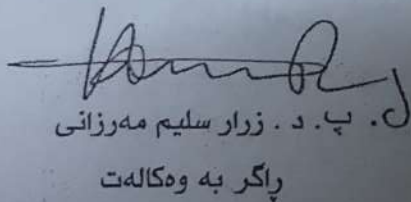 پ. د. زرار سلیم مەرزانی
ڕاگر بە وەکالەت